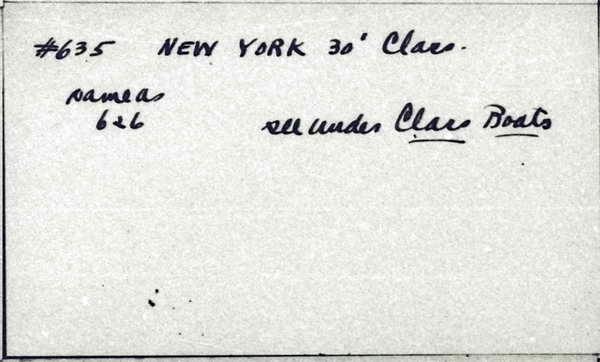 #635 NEW YORK 30' Class.
same as
626
see under Class Boats